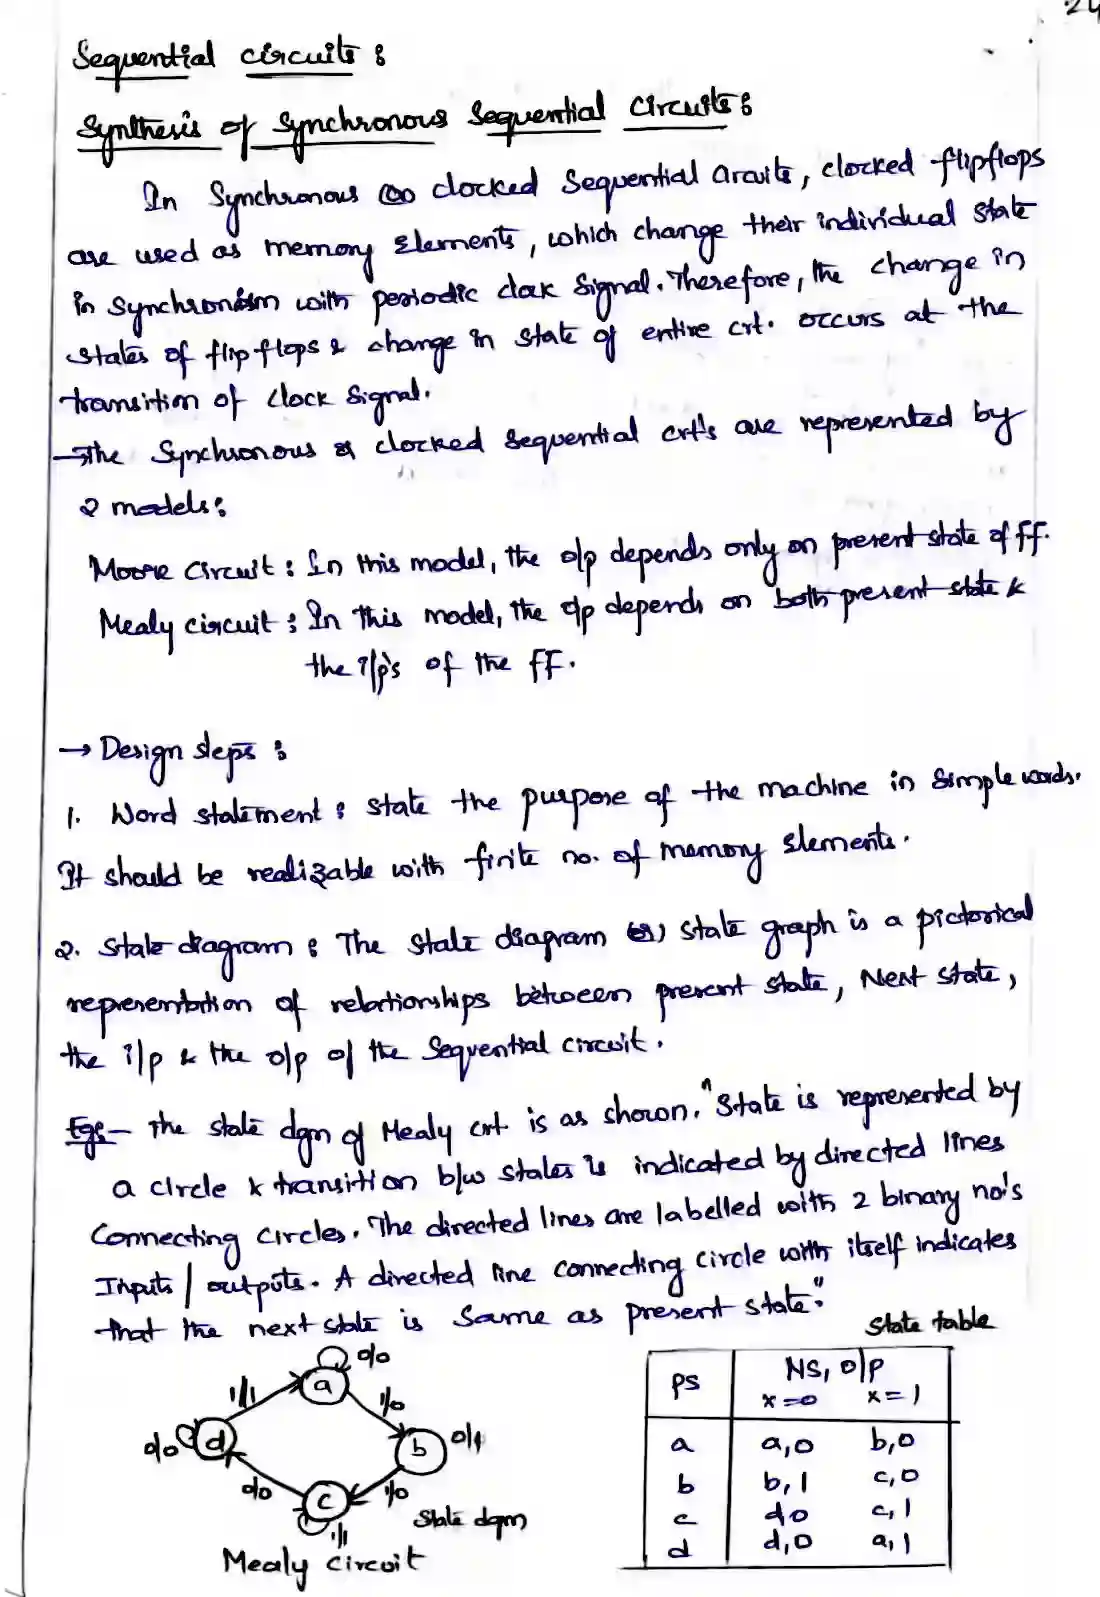 24
Sequential circuits :
Synthesis of Synchronous Sequential circuits :
In Synchronous (or) clocked Sequential Circuits, clocked flipflops
are used as memory Elements, which change their individual state
in synchronism with periodic clock Signal. Therefore, the change in
states of flip flops & change in state of entire crt. occurs at the
transition of clock Signal.
→ The Synchronous or clocked sequential crt's are represented by
2 models:
Moore circuit : In this model, the o/p depends only on present state of ff.
Mealy circuit : In this model, the o/p depends on both present state &
the i/p's of the FF.
→ Design steps :
1. Word statement : state the purpose of the machine in Simple words.
It should be realizable with finite no. of memory elements.
2. State diagram : The State diagram (or) state graph is a pictorical
representation of relationships between present state, Next state,
the i/p & the o/p of the Sequential circuit.
Eg:- The state dgm of Mealy crt is as shown. "State is represented by
a circle & transition b/w states is indicated by directed lines
Connecting circles. The directed lines are labelled with 2 binary no's
Inputs / outputs. A directed line connecting circle with itself indicates
that the next state is Same as present state."
State table
0/0
a
1/1
1/0
0/0
d
b
0/1
0/0
c
1/0
1/1
State dgm
Mealy circuit
PS NS, O/P
x=0 x=1
a a,0 b,0
b b,1 c,0
c d0 c,1
d d,0 a,1